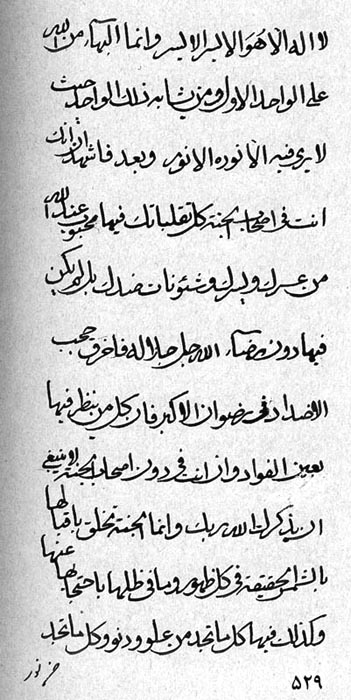 لا اله الا هو الايسر الايسر وانما البهاء من الله
على الواحد الاول ومن يشابه ذلك الواحد حيث
لا يرى فيه الا نوره الانور وبعد فاشهد ان انك
انت في اصحاب الجنة كل تقلباتك فيها محبوب عند الله
من عسرك ويسرك وشئونات ضدك بل لم يكن
فيها دون رضاء الله جل جلاله فاخرق حجب
الاضداد في رضوان الاكبر فان كل من ينظر فيها
بعين الفواد وان انت في دون اصحاب الجنة لا ينبغي
ان يذكرك الله ربك وانما الجنة تخلق باقبالها
بالشمس الحقيقة في كل ظهور وما في ظلها باحتجابها عنها
وكذلك فيها كل ما تجد من علو ودنو وكل ما تجد
٥٢٩